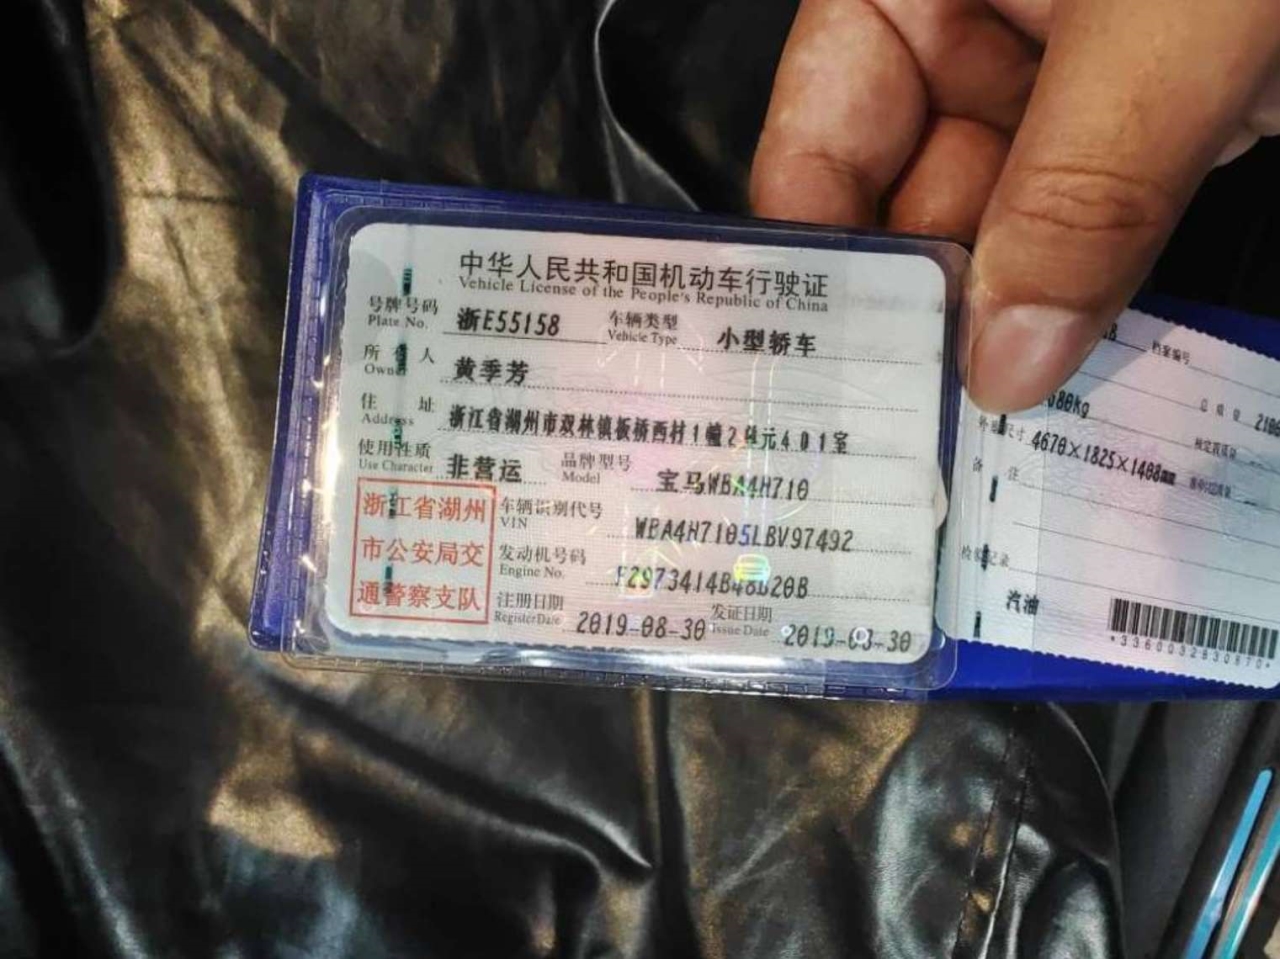 中华人民共和国机动车行驶证
Vehicle License of the People's Republic of China
号牌号码 浙E55158 车辆类型 小型轿车
Plate No. Vehicle Type
所 人 黄季芳
Owner
住 址 浙江省湖州市双林镇板桥西村1幢2单元401室
Address
使用性质 非营运 品牌型号 宝马WBA4H710
Use Character Model
浙江省湖州
市公安局交
通警察支队
车辆识别代号 WBA4H7105LBV97492
VIN
发动机号码
Engine No.
注册日期 2019-08-30 发证日期 2019-08-30
Register Date Issue Date
档案编号
80kg
总质量
外廓尺寸 4670×1825×1408mm
备 注
检验记录
汽油